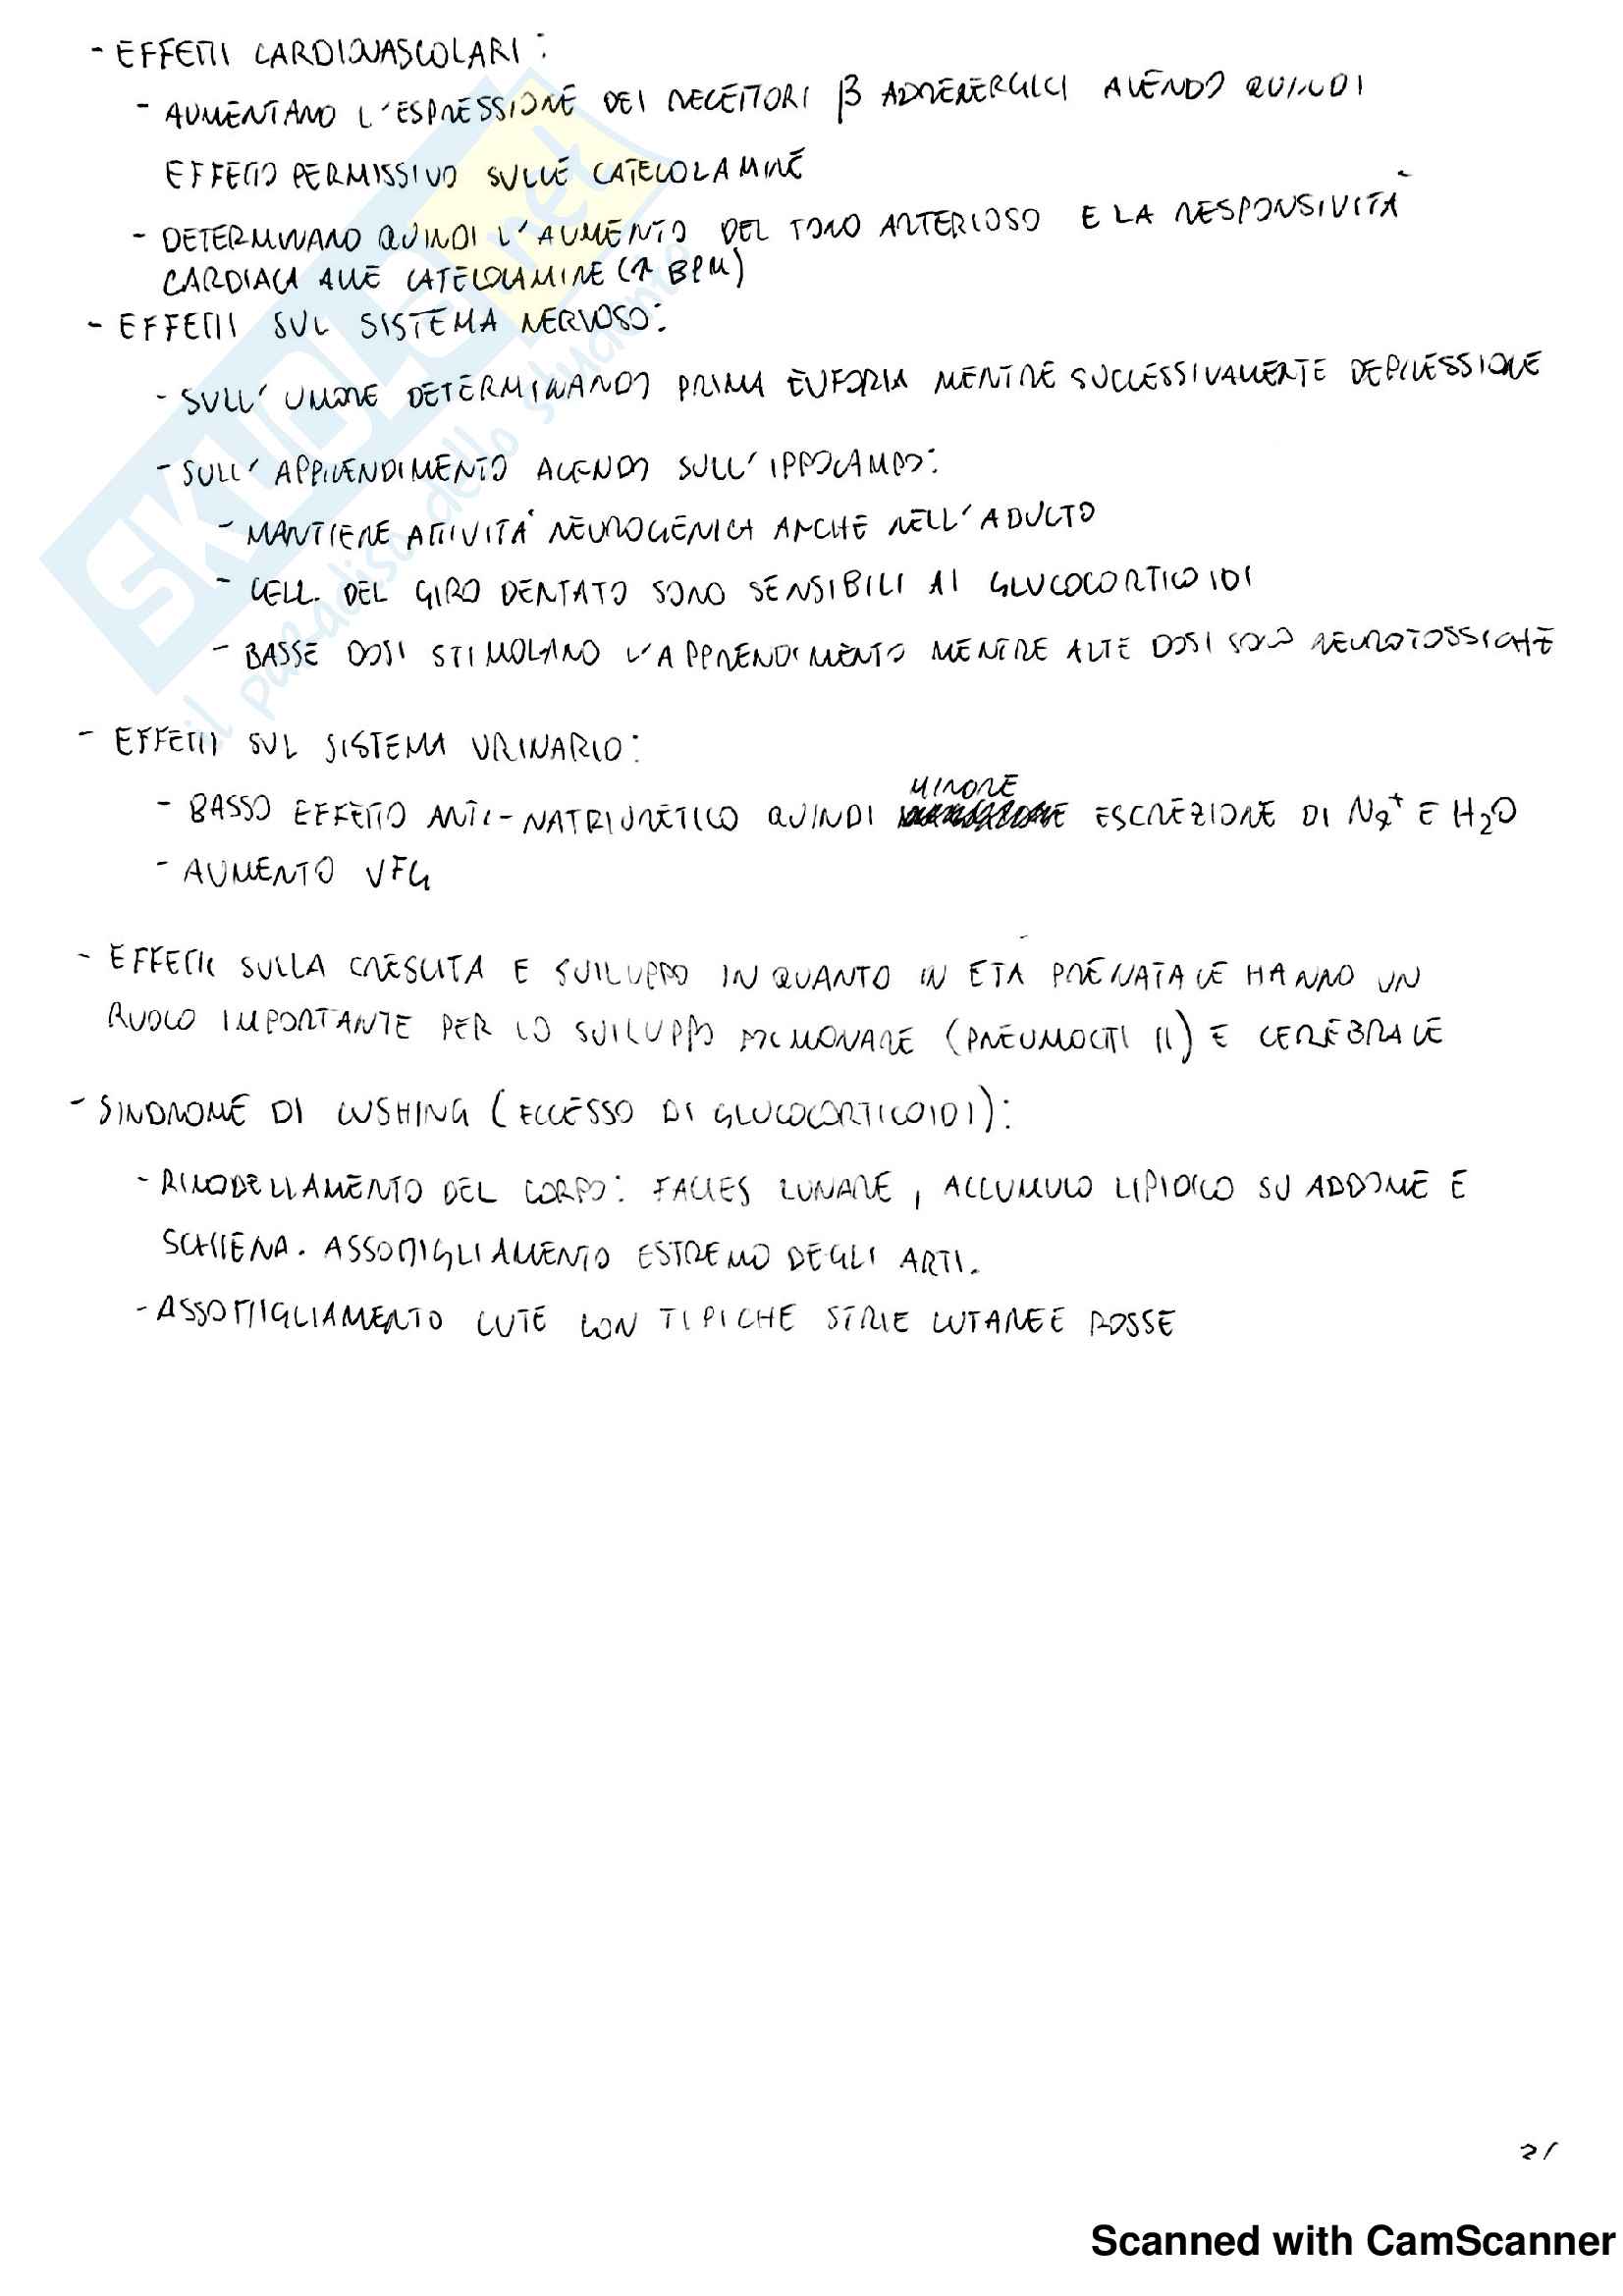 - EFFETTI CARDIOVASCOLARI:
- AUMENTANO L'ESPRESSIONE DEI RECETTORI β ADRENERGICI AVENDO QUINDI
EFFETTO PERMISSIVO SULLE CATECOLAMINE
- DETERMINANO QUINDI L'AUMENTO DEL TONO ARTERIOSO E LA RESPONSIVITÀ
CARDIACA ALLE CATECOLAMINE (↑ BPM)
- EFFETTI SUL SISTEMA NERVOSO:
- SULL'UMORE DETERMINANDO PRIMA EUFORIA MENTRE SUCCESSIVAMENTE DEPRESSIONE
- SULL'APPRENDIMENTO AGENDO SULL'IPPOCAMPO:
- MANTIENE ATTIVITÀ NEUROGENICA ANCHE NELL'ADULTO
- CELL. DEL GIRO DENTATO SONO SENSIBILI AI GLUCOCORTICOIDI
- BASSE DOSI STIMOLANO L'APPRENDIMENTO MENTRE ALTE DOSI SONO NEUROTOSSICHE
- EFFETTI SUL SISTEMA URINARIO:
- BASSO EFFETTO ANTI-NATRIURETICO QUINDI MINORE ESCREZIONE DI Na+ E H2O
- AUMENTO VFG
- EFFETTI SULLA CRESCITA E SVILUPPO IN QUANTO IN ETÀ PRENATALE HANNO UN
RUOLO IMPORTANTE PER LO SVILUPPO POLMONARE (PNEUMOCITI II) E CEREBRALE
- SINDROME DI CUSHING (ECCESSO DI GLUCOCORTICOIDI):
- RIMODELLAMENTO DEL CORPO: FACIES LUNARE, ACCUMULO LIPIDICO SU ADDOME E
SCHIENA. ASSOTTIGLIAMENTO ESTREMO DEGLI ARTI.
- ASSOTTIGLIAMENTO CUTE CON TIPICHE STRIE CUTANEE ROSSE
SKUOLA.net
il paradiso dello studente
21
Scanned with CamScanner